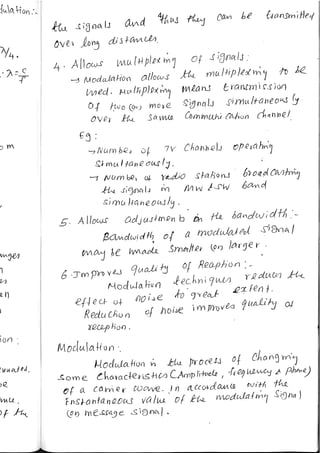 the signals and thus they can be transmitted
over long distances.
4. Allows multiplexing of signals :
→ Modulation allows the multiplexing to be
used. Multiplexing means transmission
of two (or) more signals simultaneously
over the same communication channel.
Eg :
→ Number of TV channels operating
simultaneously.
→ Number of radio stations broadcasting
the signals in MW & SW band
simultaneously.
5. Allows adjustment in the bandwidth :-
Bandwidth of a modulated signal
may be made smaller (or) larger.
6. Improves quality of Reception :-
Modulation techniques reduces the
effect of noise to great extent.
Reduction of noise improves quality of
reception.
Modulation :
Modulation is the process of changing
some characteristics (Amplitude, frequency & phase)
of a carrier wave in accordance with the
instantaneous value of the modulating signal
(or) message signal.